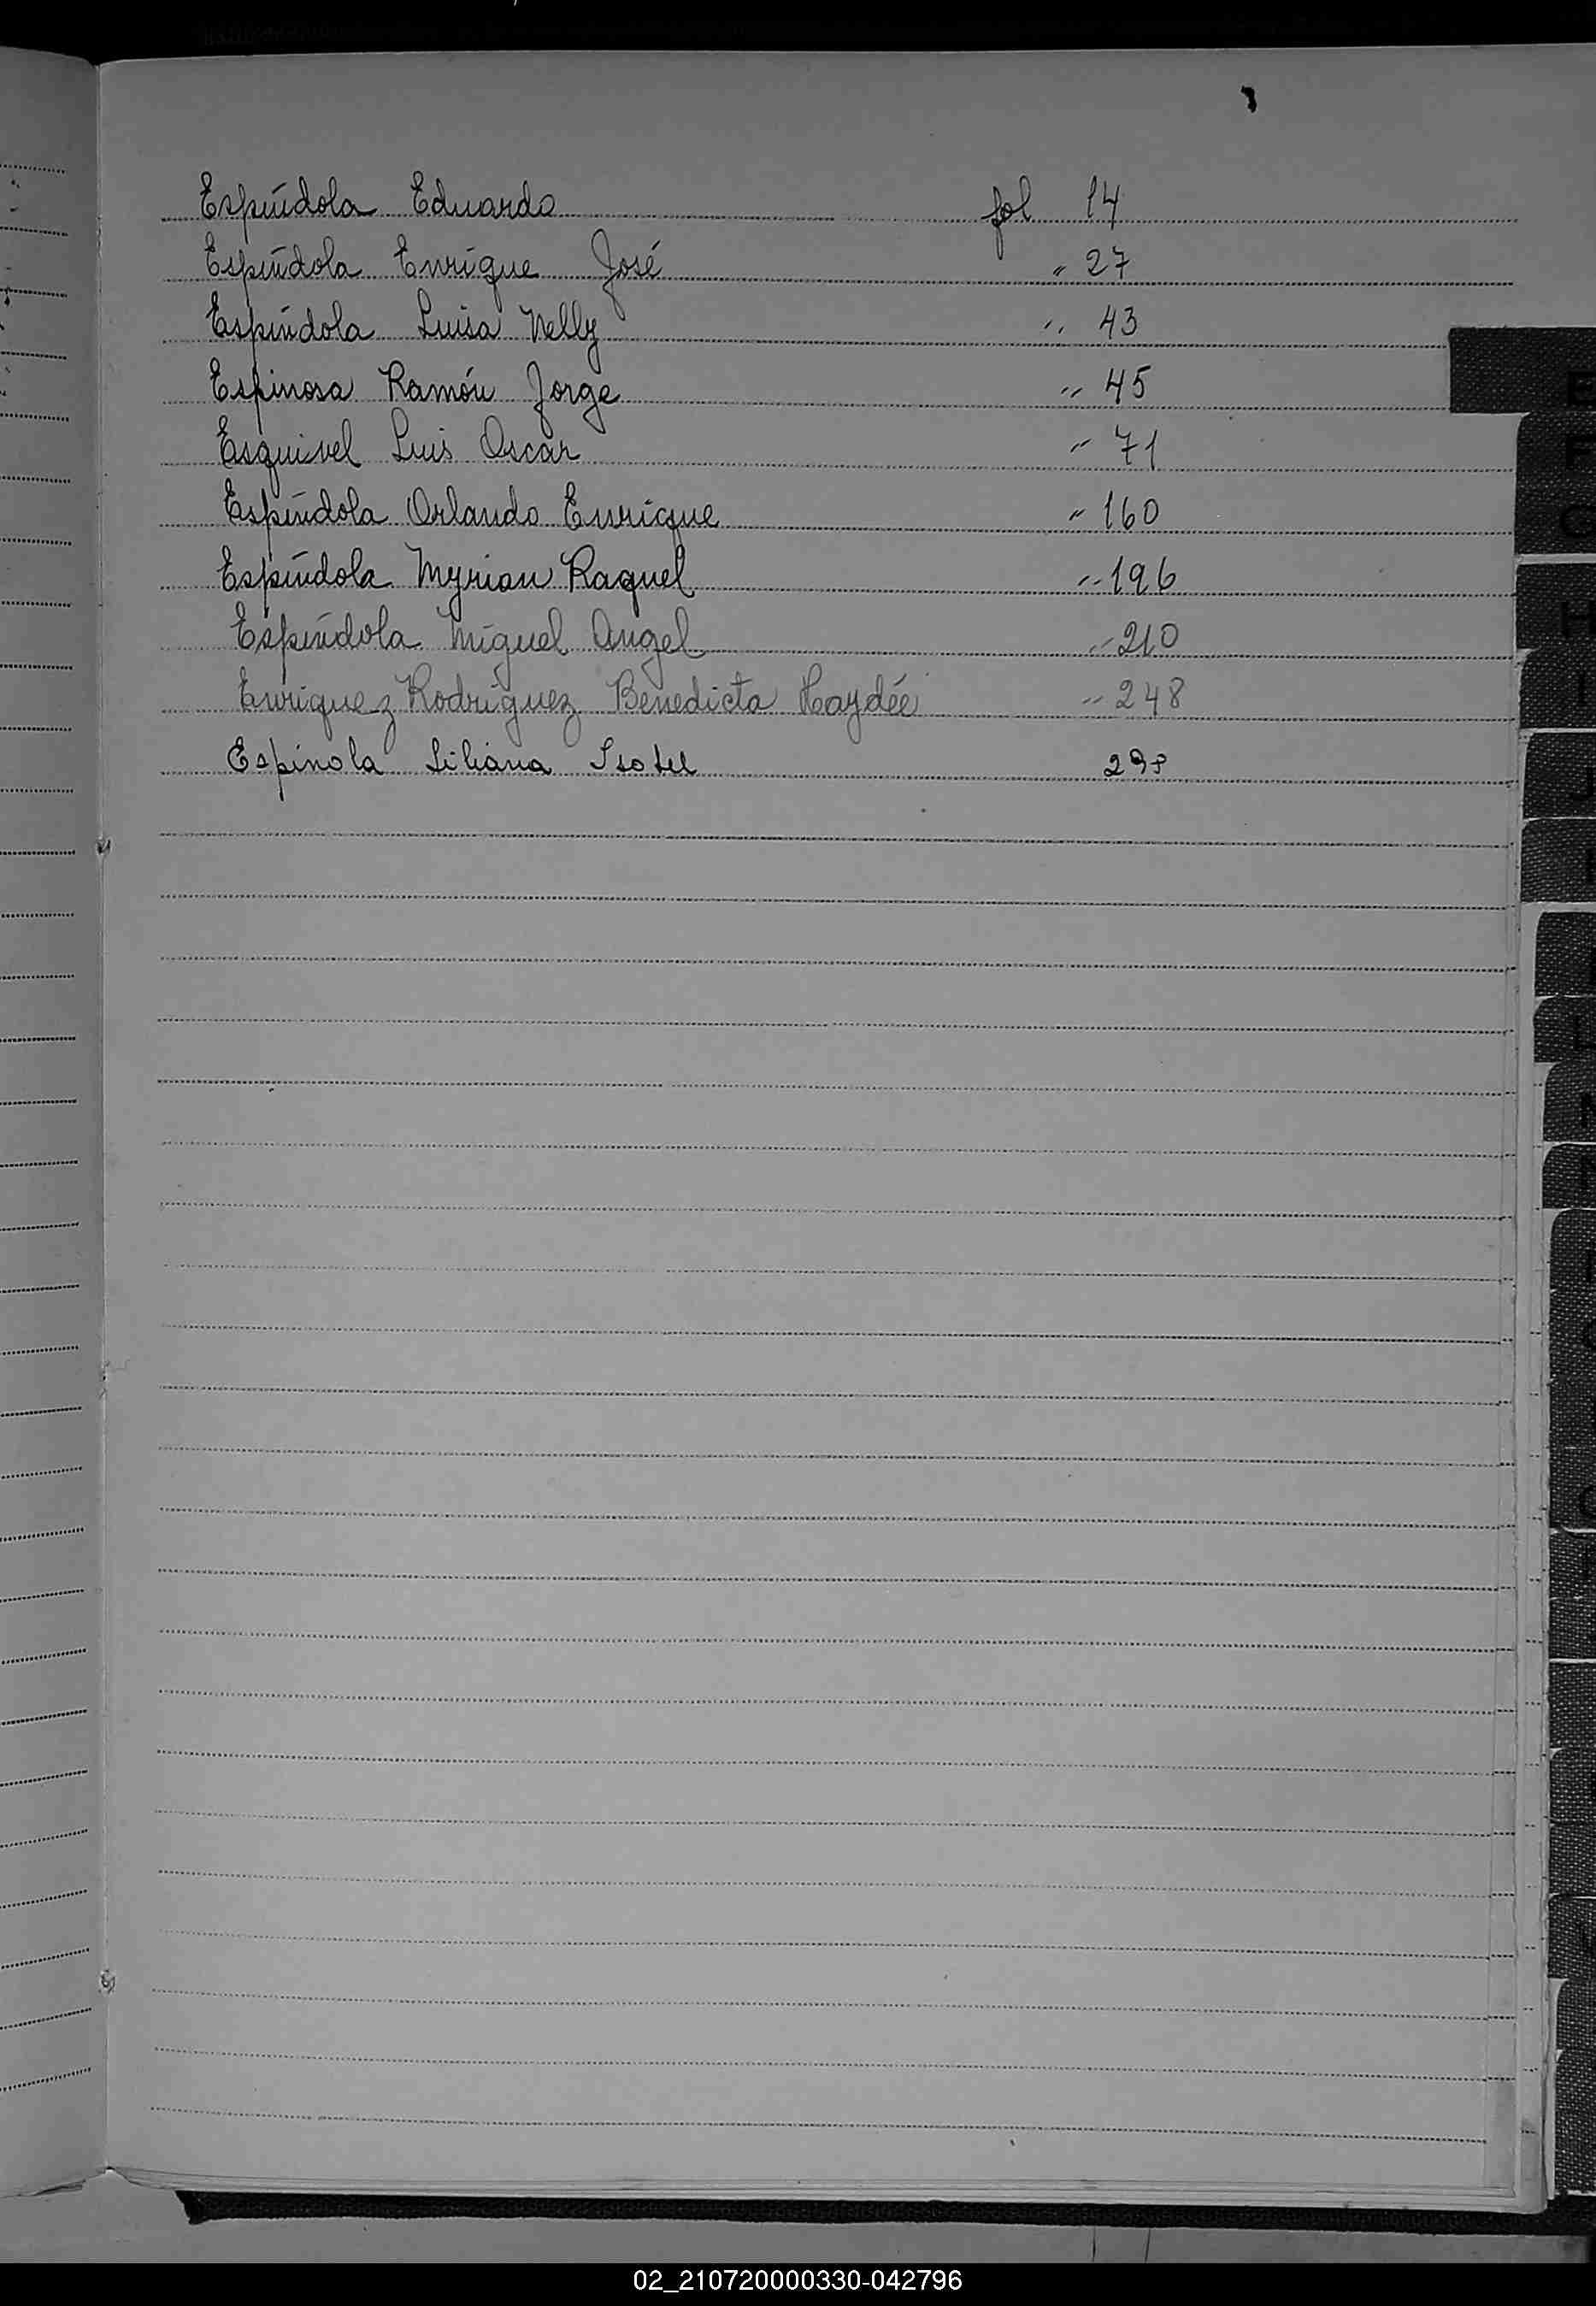 Espíndola Eduardo fol 14
Espíndola Enrique José " 27
Espíndola Luisa Nelly " 43
Espinosa Ramón Jorge " 45
Esquivel Luis Oscar " 71
Espíndola Orlando Enrique " 160
Espíndola Myrian Raquel " 196
Espíndola Miguel Angel " 210
Enriquez Rodríguez Benedicta Haydée " 248
Espínola Liliana
02_210720000330-042796